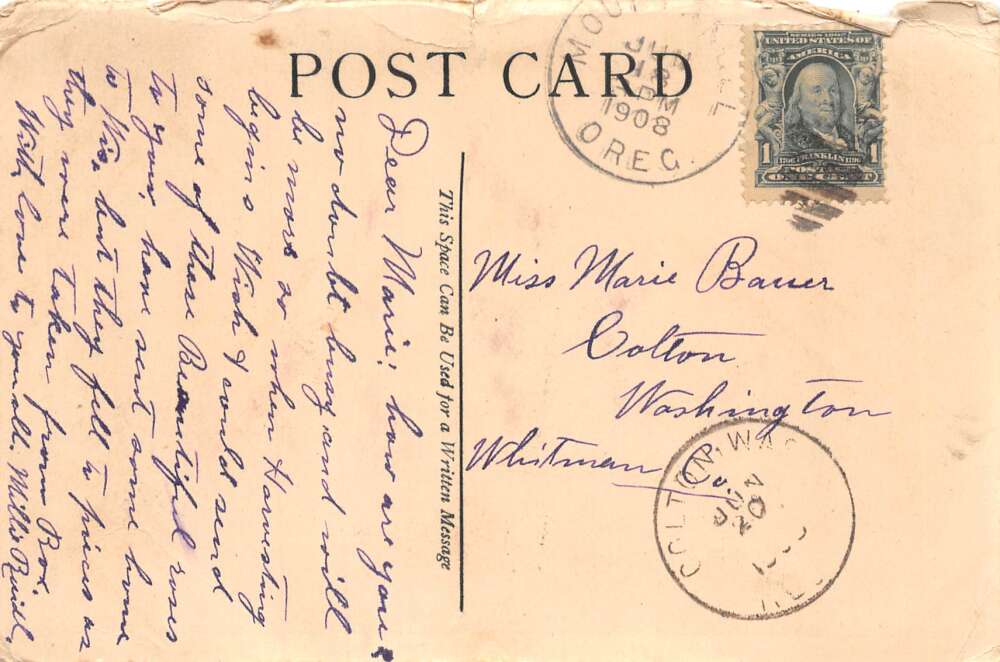 POST CARD
MOUNT ANGEL
JUN
18
PM
1908
OREG.
SERIES 1902
UNITED STATES OF
AMERICA
1
1706 FRANKLIN 1790
1
POSTAGE
ONE CENT
This Space Can Be Used for a Written Message
Dear Marie; how are you?
no doubt busy, and will
be more so when Harvesting
begins. Wish I could send
some of these Beautiful roses
to you, have sent some home
to Wis. but they fell to pieces as
they were taken from Box.
With love to you all. Millie
Miss Marie Bauer
Colton
Washington
Whitman Co.
COLTON, WASH
20